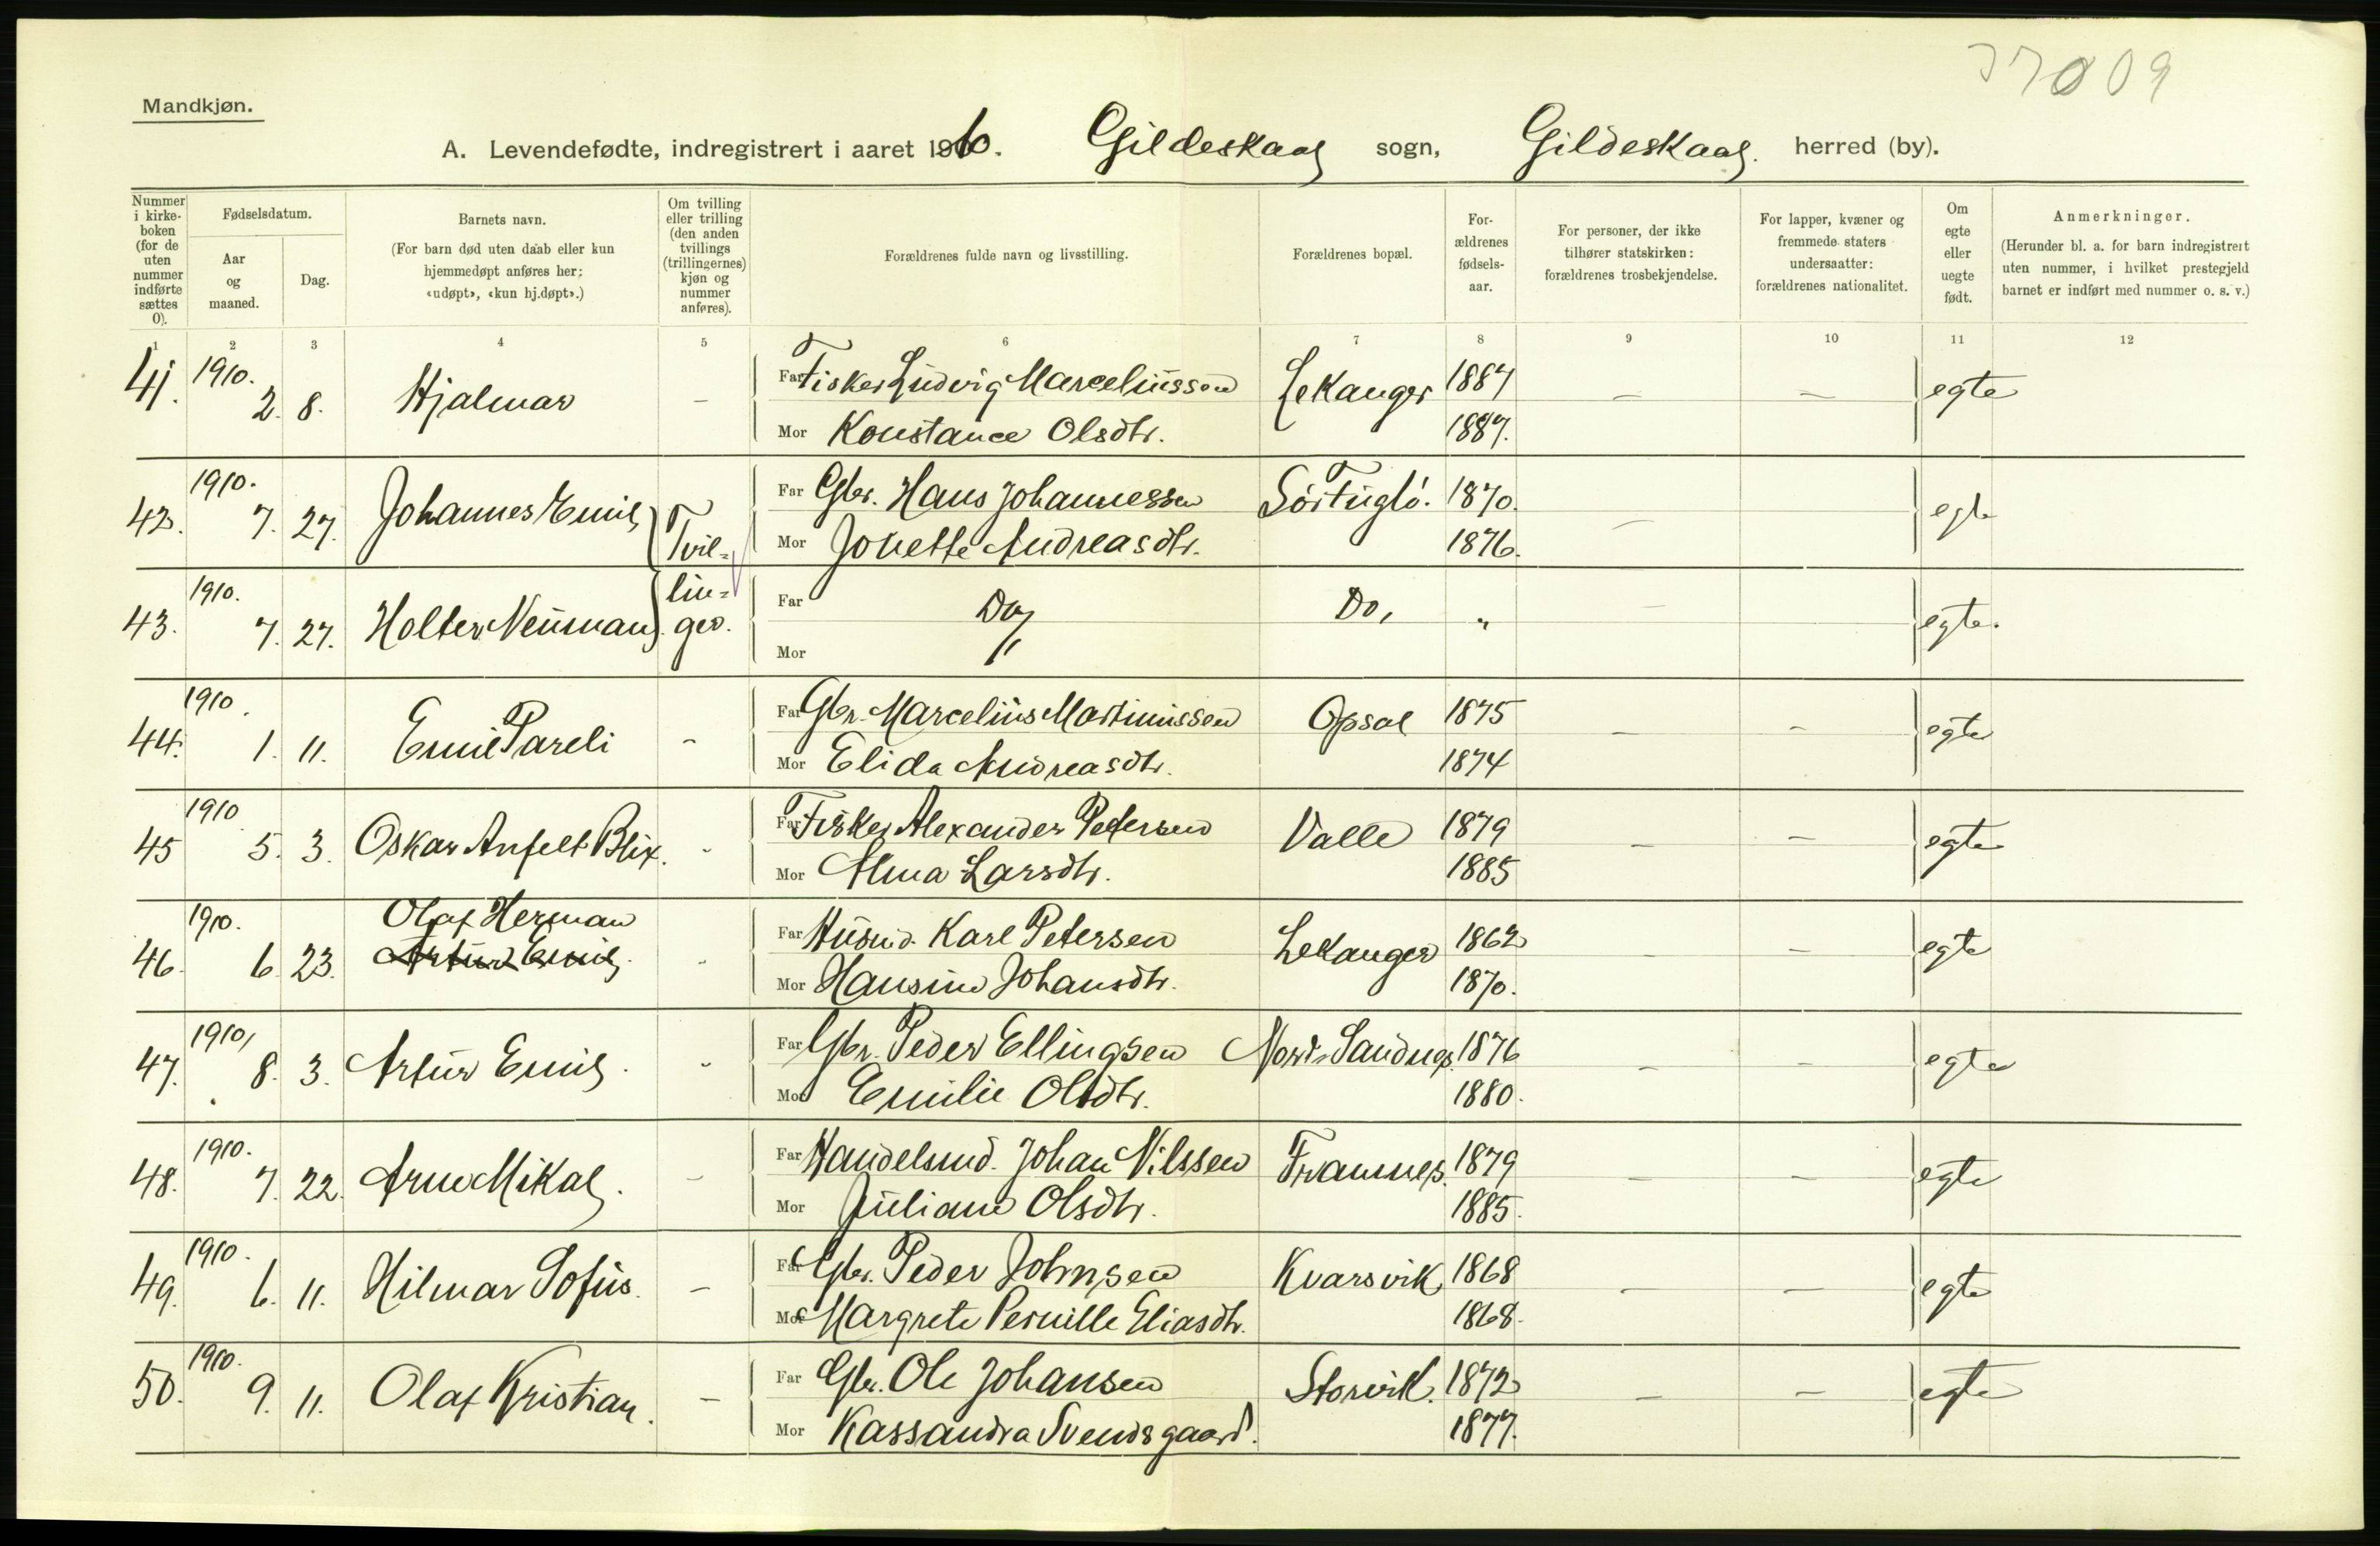 37009
Mandkjøn.
A. Levendefødte, indregistrert i aaret 1910. Gildeskaal sogn, Gildeskaal. herred (by).
Nummer i kirke-boken (for de uten nummer indførte sættes 0).
Fødselsdatum.
Aar og maaned.
Dag.
Barnets navn.
(For barn død uten daab eller kun hjemmedøpt anføres her; «udøpt», «kun hj.døpt».)
Om tvilling eller trilling (den anden tvillings (trillingernes) kjøn og nummer anføres).
Forældrenes fulde navn og livsstilling.
Forældrenes bopæl.
For-ældrenes fødsels-aar.
For personer, der ikke tilhører statskirken: forældrenes trosbekjendelse.
For lapper, kvæner og fremmede staters undersaatter: forældrenes nationalitet.
Om egte eller uegte født.
Anmerkninger.
(Herunder bl. a. for barn indregistrert uten nummer, i hvilket prestegjeld barnet er indført med nummer o. s. v.)
1 2 3 4 5 6 7 8 9 10 11 12
41. 1910. 2. 8. Hjalmar – Far Fisker Ludvig Marceliussen Lekanger 1887 – – egte
Mor Konstance Olsdtr. 1887.
42. 1910. 7. 27. Johannes Emil Tvil= Far Gbr. Hans Johannessen Sörfuglö. 1870. – egte
Mor Jonette Andreasdtr. 1876.
43. 1910. 7. 27. Holter Neuman lin= ger. Far Do, Do, " – egte.
Mor
44. 1910. 1. 11. Emil Pareli – Far Gbr. Marcelius Martinussen Opsal 1875 – – egte
Mor Elida Andreasdtr. 1874
45 1910 5. 3. Oskar Anfelt Blix. - Far Fisker Alexander Petersen Valle 1879 – – egte
Mor Alma Larsdtr. 1885
46. 1910. 6. 23. Olaf Herman Artur Emil. - Far Husmd. Karl Petersen Lekanger 1862 - – egte
Mor Hansine Johansdtr. 1870.
47. 1910, 8. 3. Artur Emil. - Far Gbr. Peder Ellingsen Nord-Sandnes. 1876 – – egte
Mor Emilie Olsdtr. 1880.
48. 1910. 7. 22. Arne Mikal. – Far Handelsmd. Johan Nilssen Framnes. 1879 – – egte
Mor Juliane Olsdtr. 1885.
49. 1910. 6. 11. Hilmar Sofus. – Far Gbr. Peder Johnsen Kvarsvik 1868 – – egte
Mor Margrete Pernille Eliasdtr. 1868.
50. 1910. 9. 11. Olaf Kristian. – Far Gbr. Ole Johansen Storvik. 1872 – – egte
Mor Kassandra Svendsgaard. 1877.